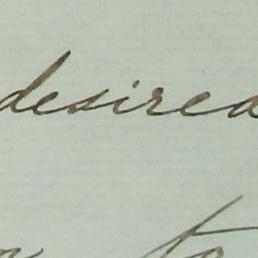 desired
to